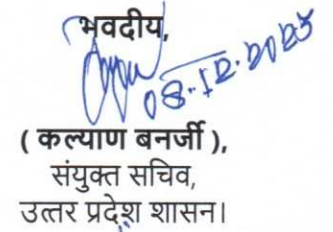 भवदीय,
08.12.2025
( कल्याण बनर्जी ),
संयुक्त सचिव,
उत्तर प्रदेश शासन।